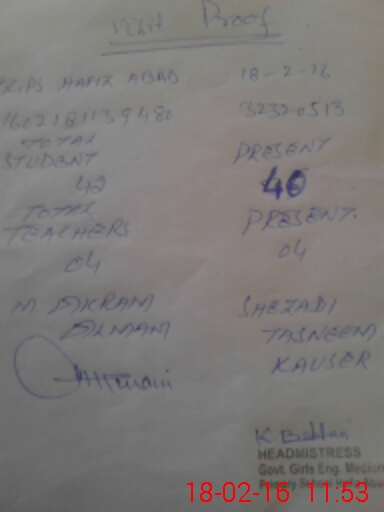 Visit Proof
HAFIZ ABAD 18-2-16
3232-0513
TOTAL
STUDENT PRESENT
42 40
TOTAL
TEACHERS PRESENT.
04 04
M AKRAM SHEZADI
TASNEEM
KAUSER
HEADMISTRESS
Govt. Girls Eng. Medium
Primary School
18-02-16 11:53